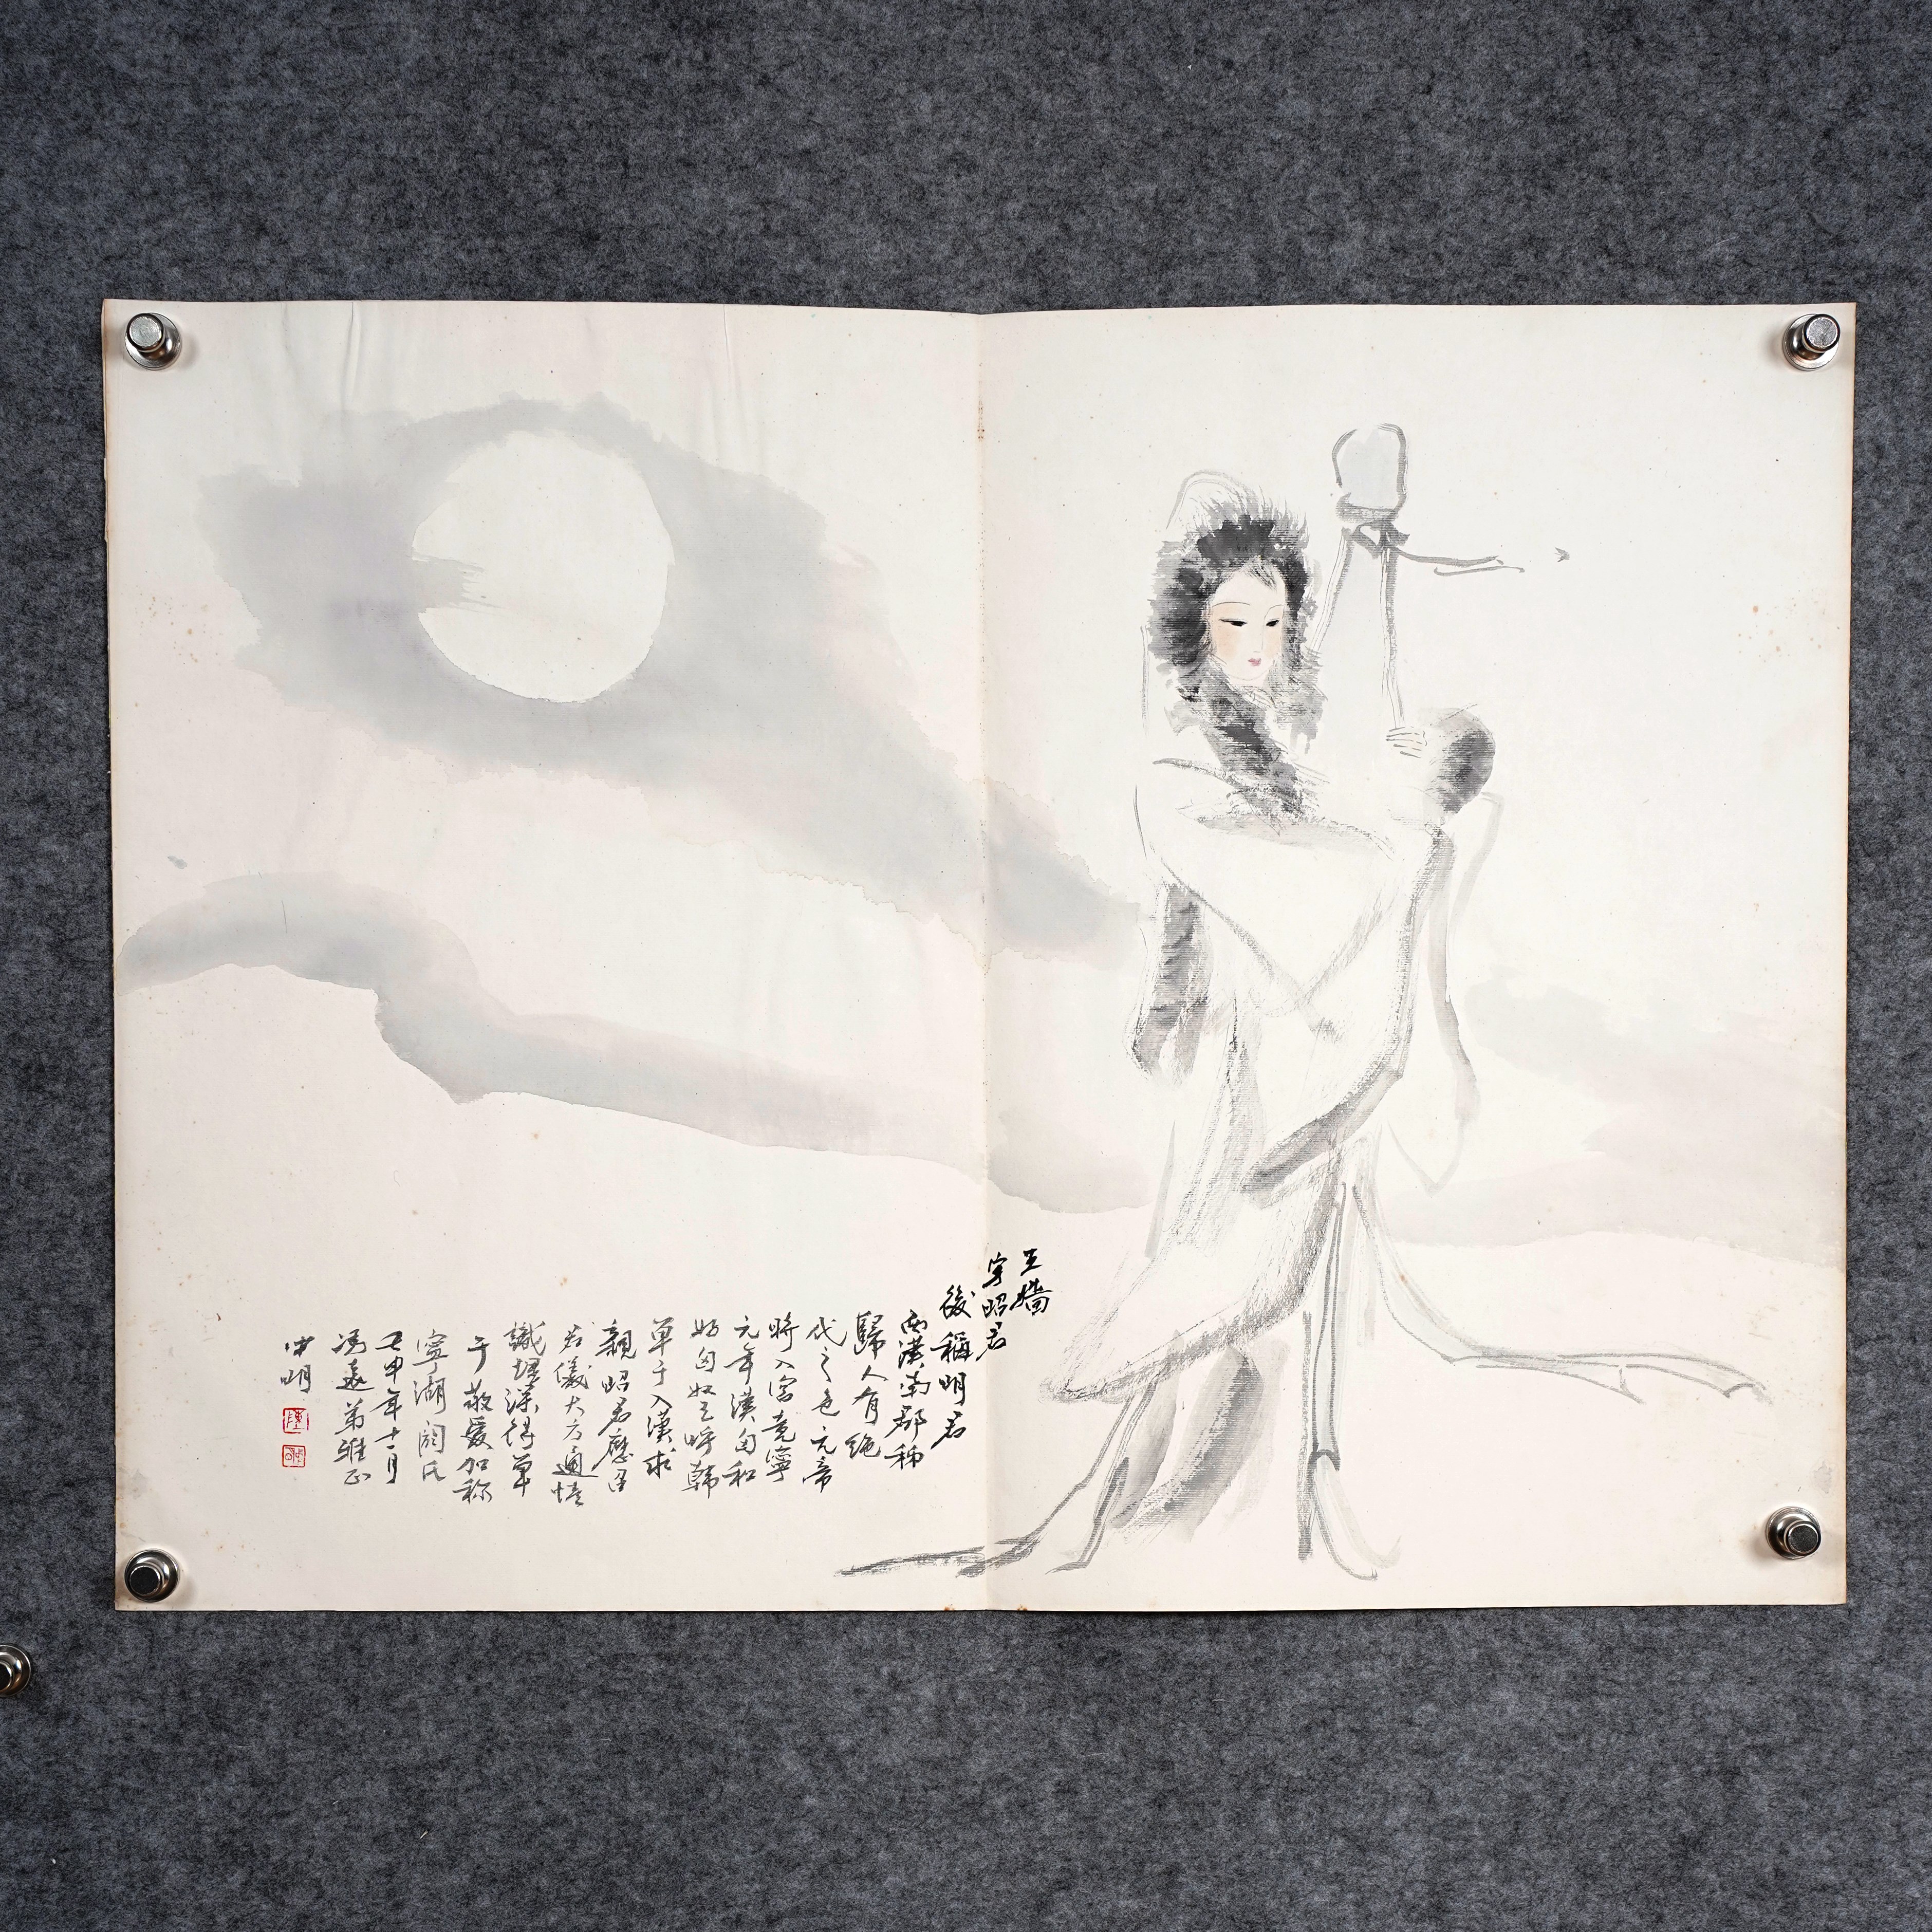 王嬙
字昭君
後稱明君
西漢南郡秭
歸人有绝
代之色元帝
時入宮竟寧
元年漢匈和
好匈奴王呼韩
單于入漢求
親昭君應召
君儀大方通情
識理深得單
于敬愛加称
寧湖閼氏
壬申年十一月
馮遠弟雅正
中明